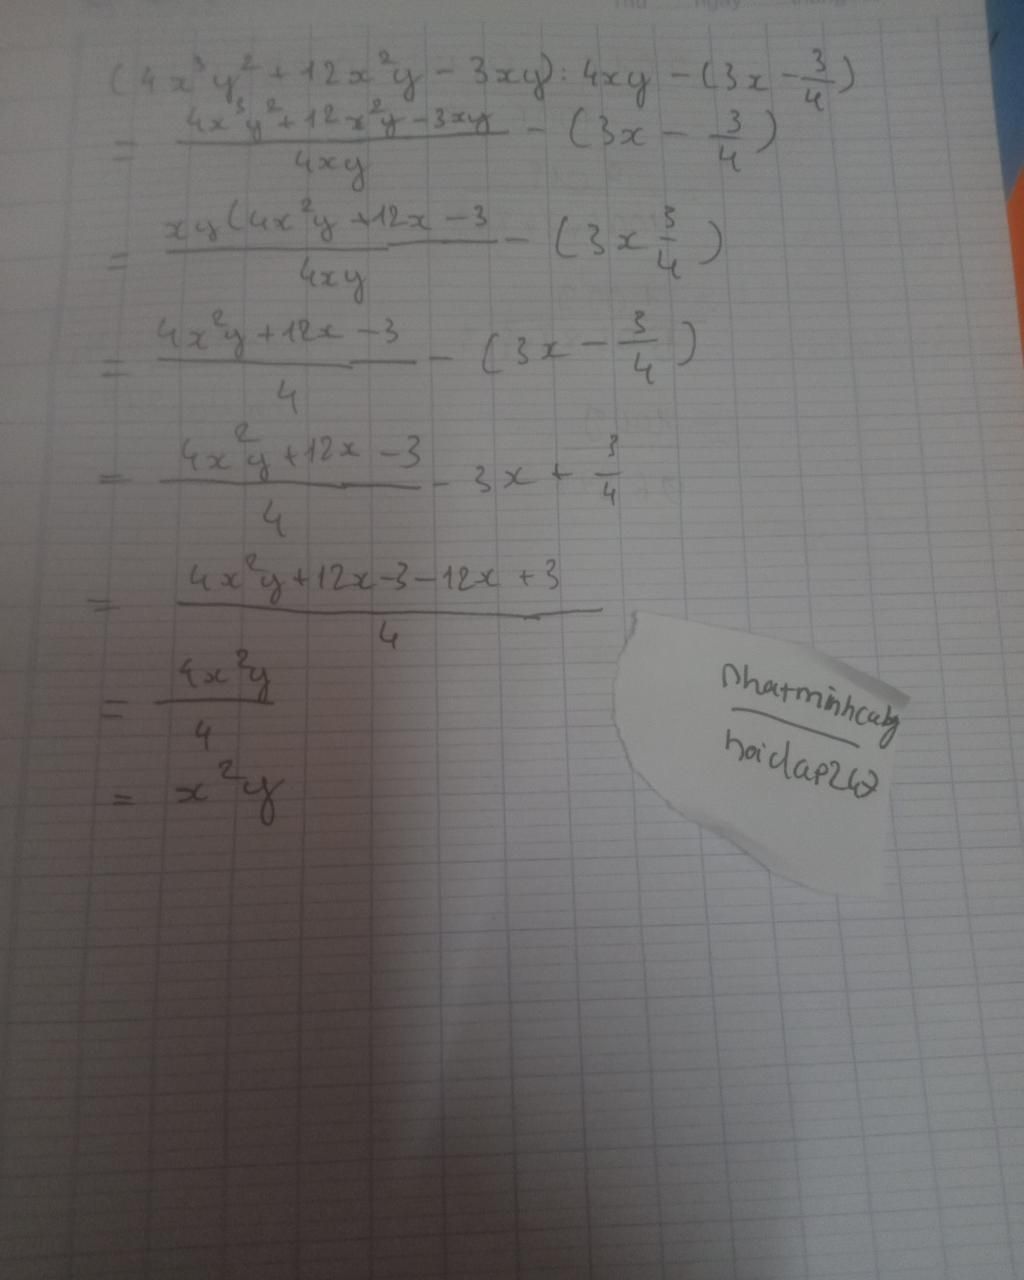 Thứ ngày tháng
(4x³y² + 12x²y - 3xy) : 4xy - (3x - 3/4)
= (4x³y² + 12x²y - 3xy)/(4xy) - (3x - 3/4)
= xy(4x²y + 12x - 3/(4xy) - (3x 3/4)
= (4x²y + 12x - 3)/4 - (3x - 3/4)
= (4x²y + 12x - 3)/4 - 3x + 3/4
= (4x²y + 12x - 3 - 12x + 3)/4
= 4x²y/4
= x²y
nhatminhcutg
hoidap247